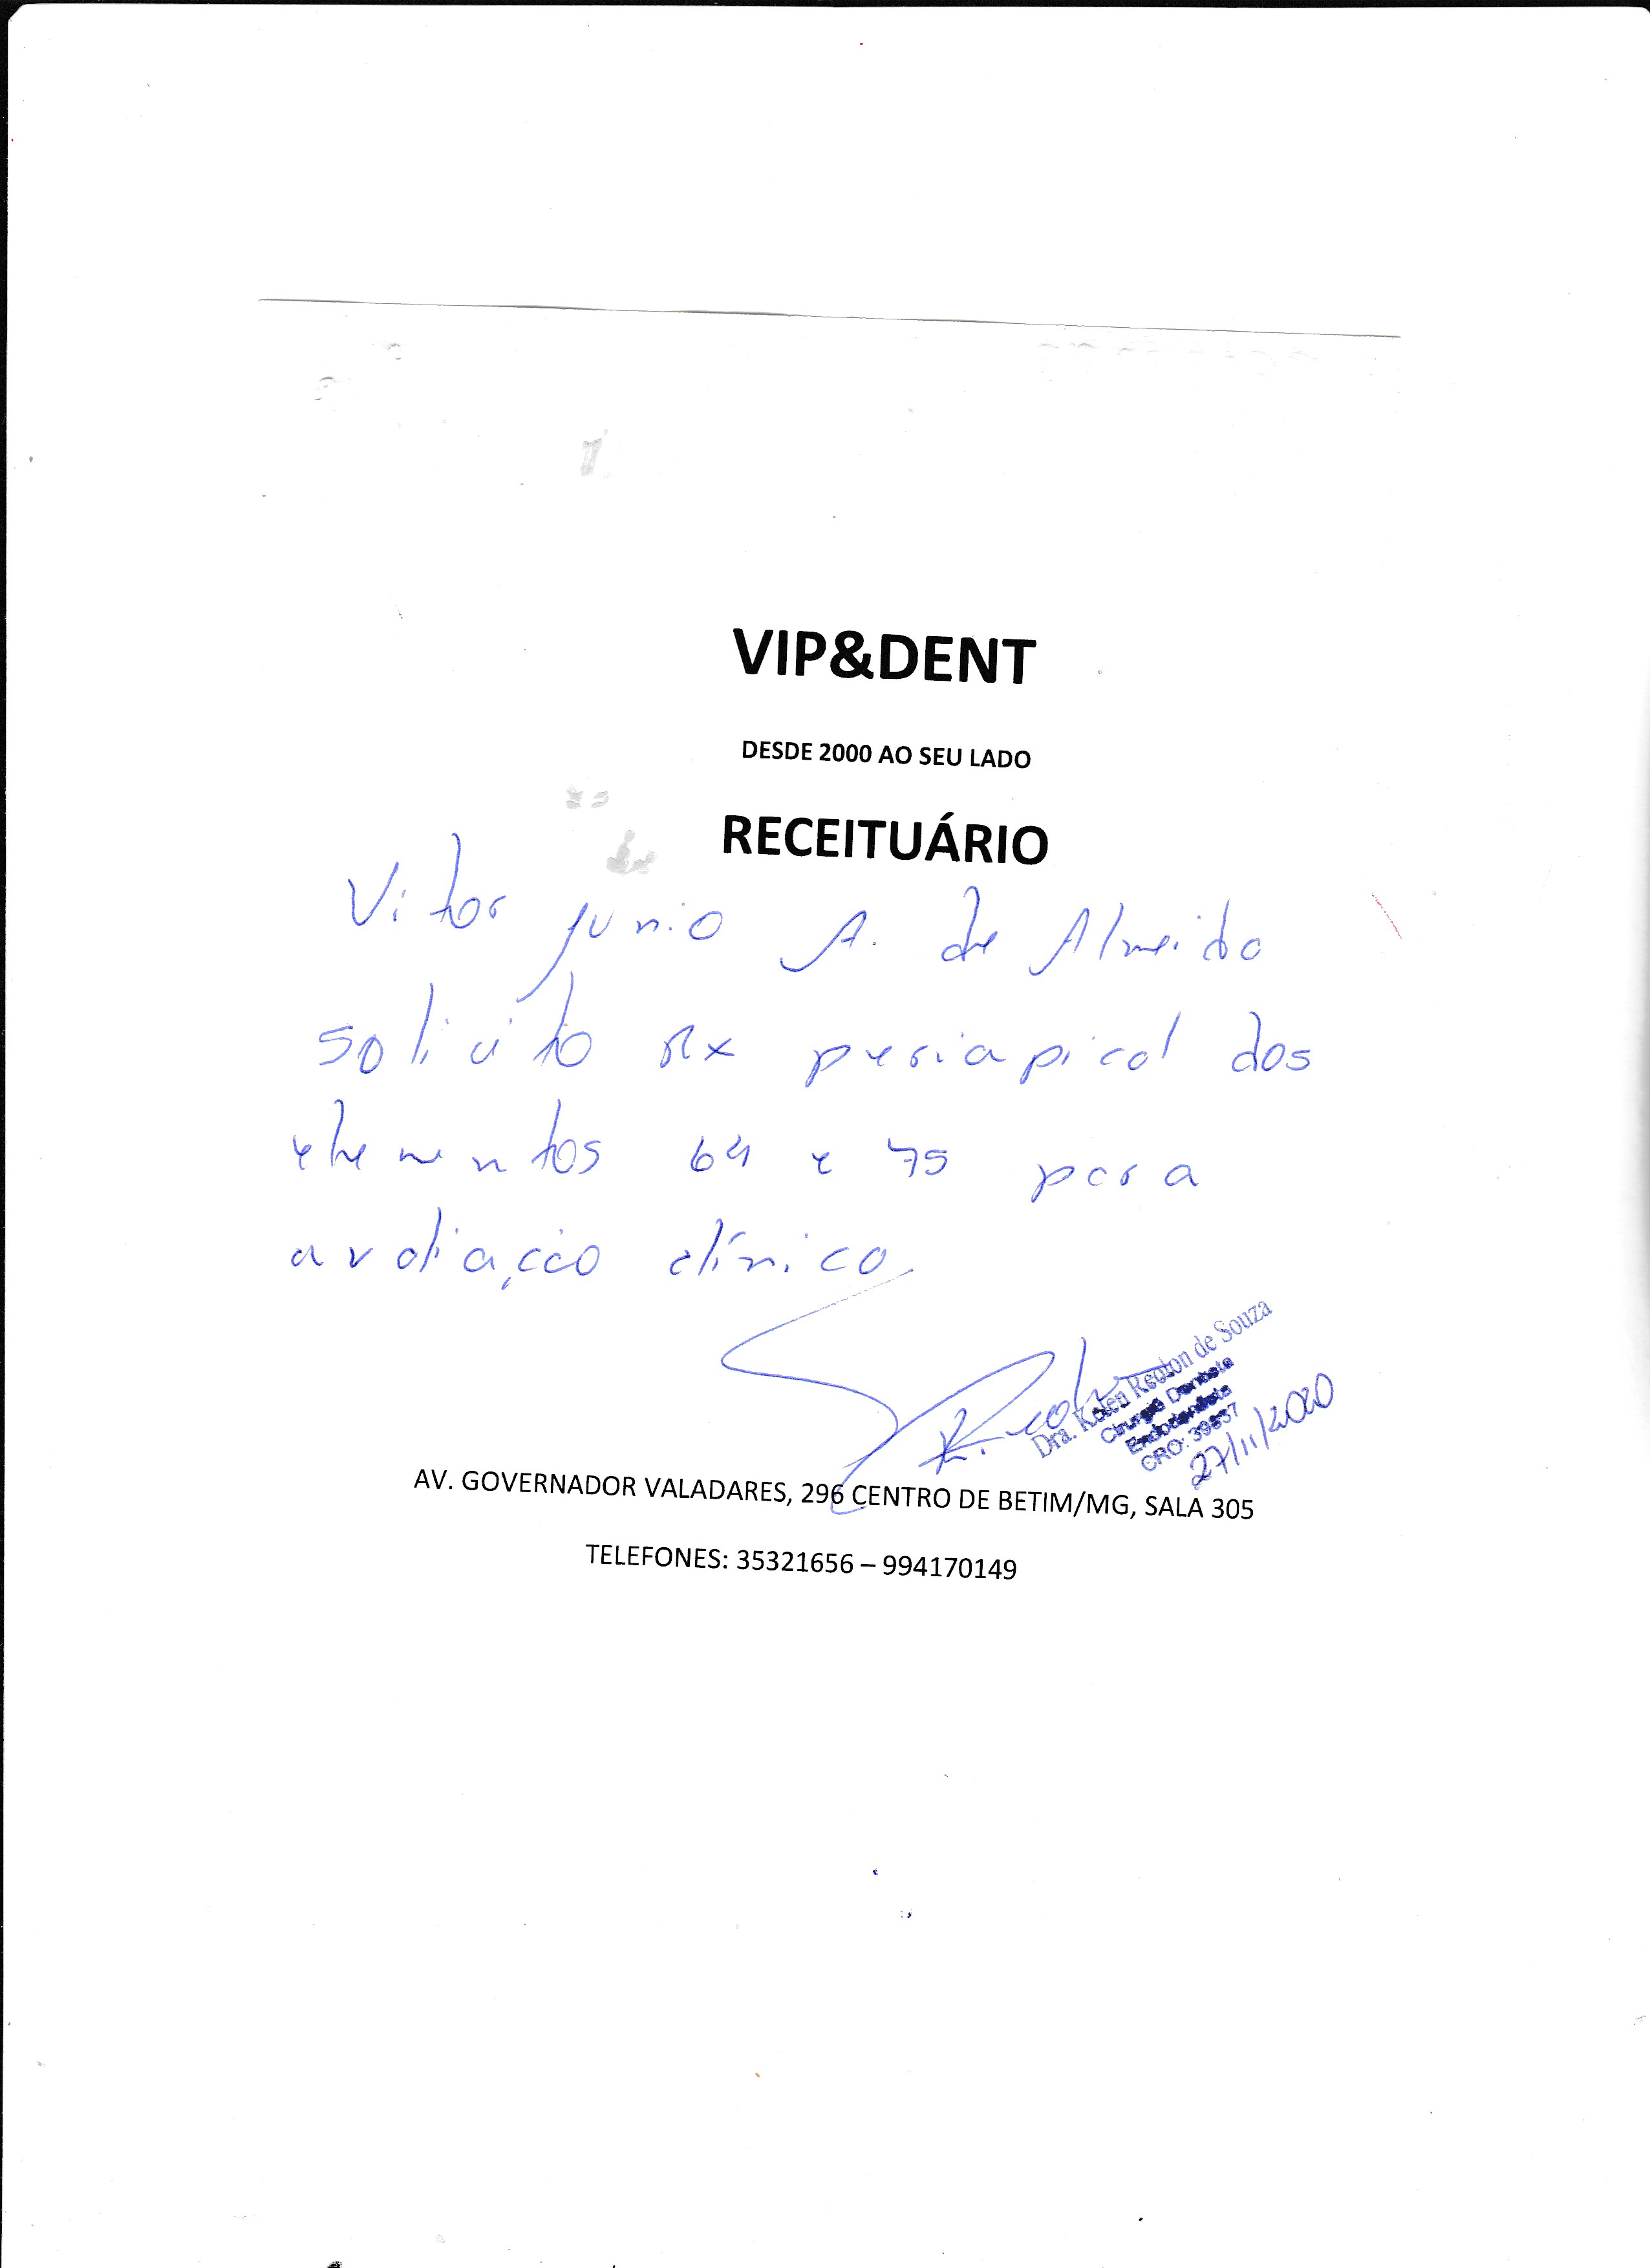 VIP&DENT
DESDE 2000 AO SEU LADO
RECEITUÁRIO
Vitor Junio A. de Almeida
solicito Rx periapical dos
elementos 64 e 75 para
avaliação clínica.
Dra. Kelen Realon de Souza
Cirurgiã Dentista
Endodontista
CRO: 39837
27/11/2020
AV. GOVERNADOR VALADARES, 296 CENTRO DE BETIM/MG, SALA 305
TELEFONES: 35321656 – 994170149